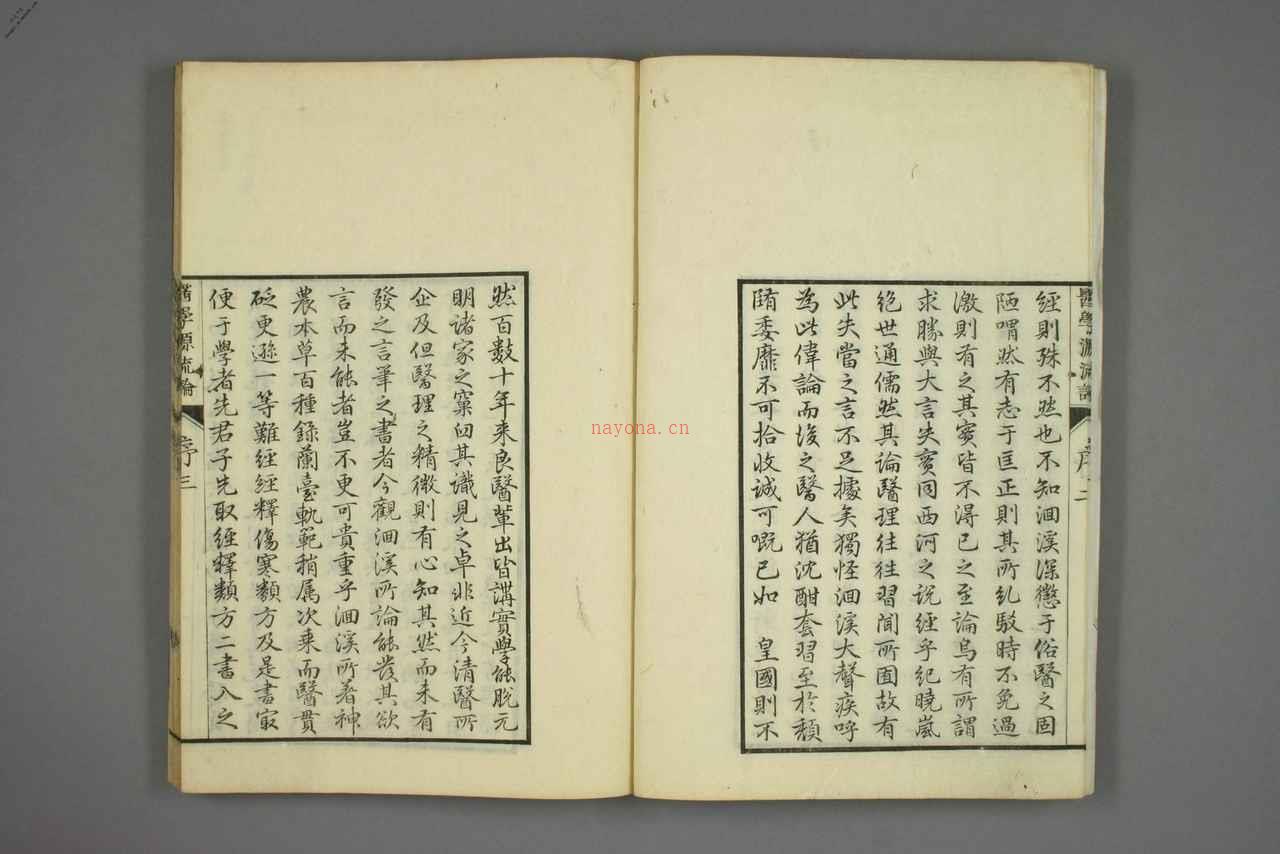 經則殊不然也不知洄溪深懲于俗醫之固
陋喟然有志于匡正則其所糺駁時不免過
激則有之其實皆不得已之至論烏有所謂
求勝與大言失實同西河之說經乎紀曉嵐
絶世通儒然其論醫理往往習聞所囿故有
此失當之言不足據矣獨怪洄溪大聲疾呼
為此偉論而後之醫人猶沈酣套習至於頹
陏委靡不可拾收誠可嘅已如　皇國則不
醫學源流論
序二
然百數十年来良醫輩出皆講實學能脫元
明諸家之窠臼其識見之卓非近今清醫所
企及但醫理之精微則有心知其然而未有
發之言筆之書者今觀洄溪所論能发其欲
言而未能者豈不更可貴重乎洄溪所著神
農本草百種錄蘭臺軌範稍属次乗而醫貫
砭更遜一等難經經釋傷寒類方及是書㝡
便于學者先君子先取經釋類方二書入之
醫學源流論
序三
nayona.cn